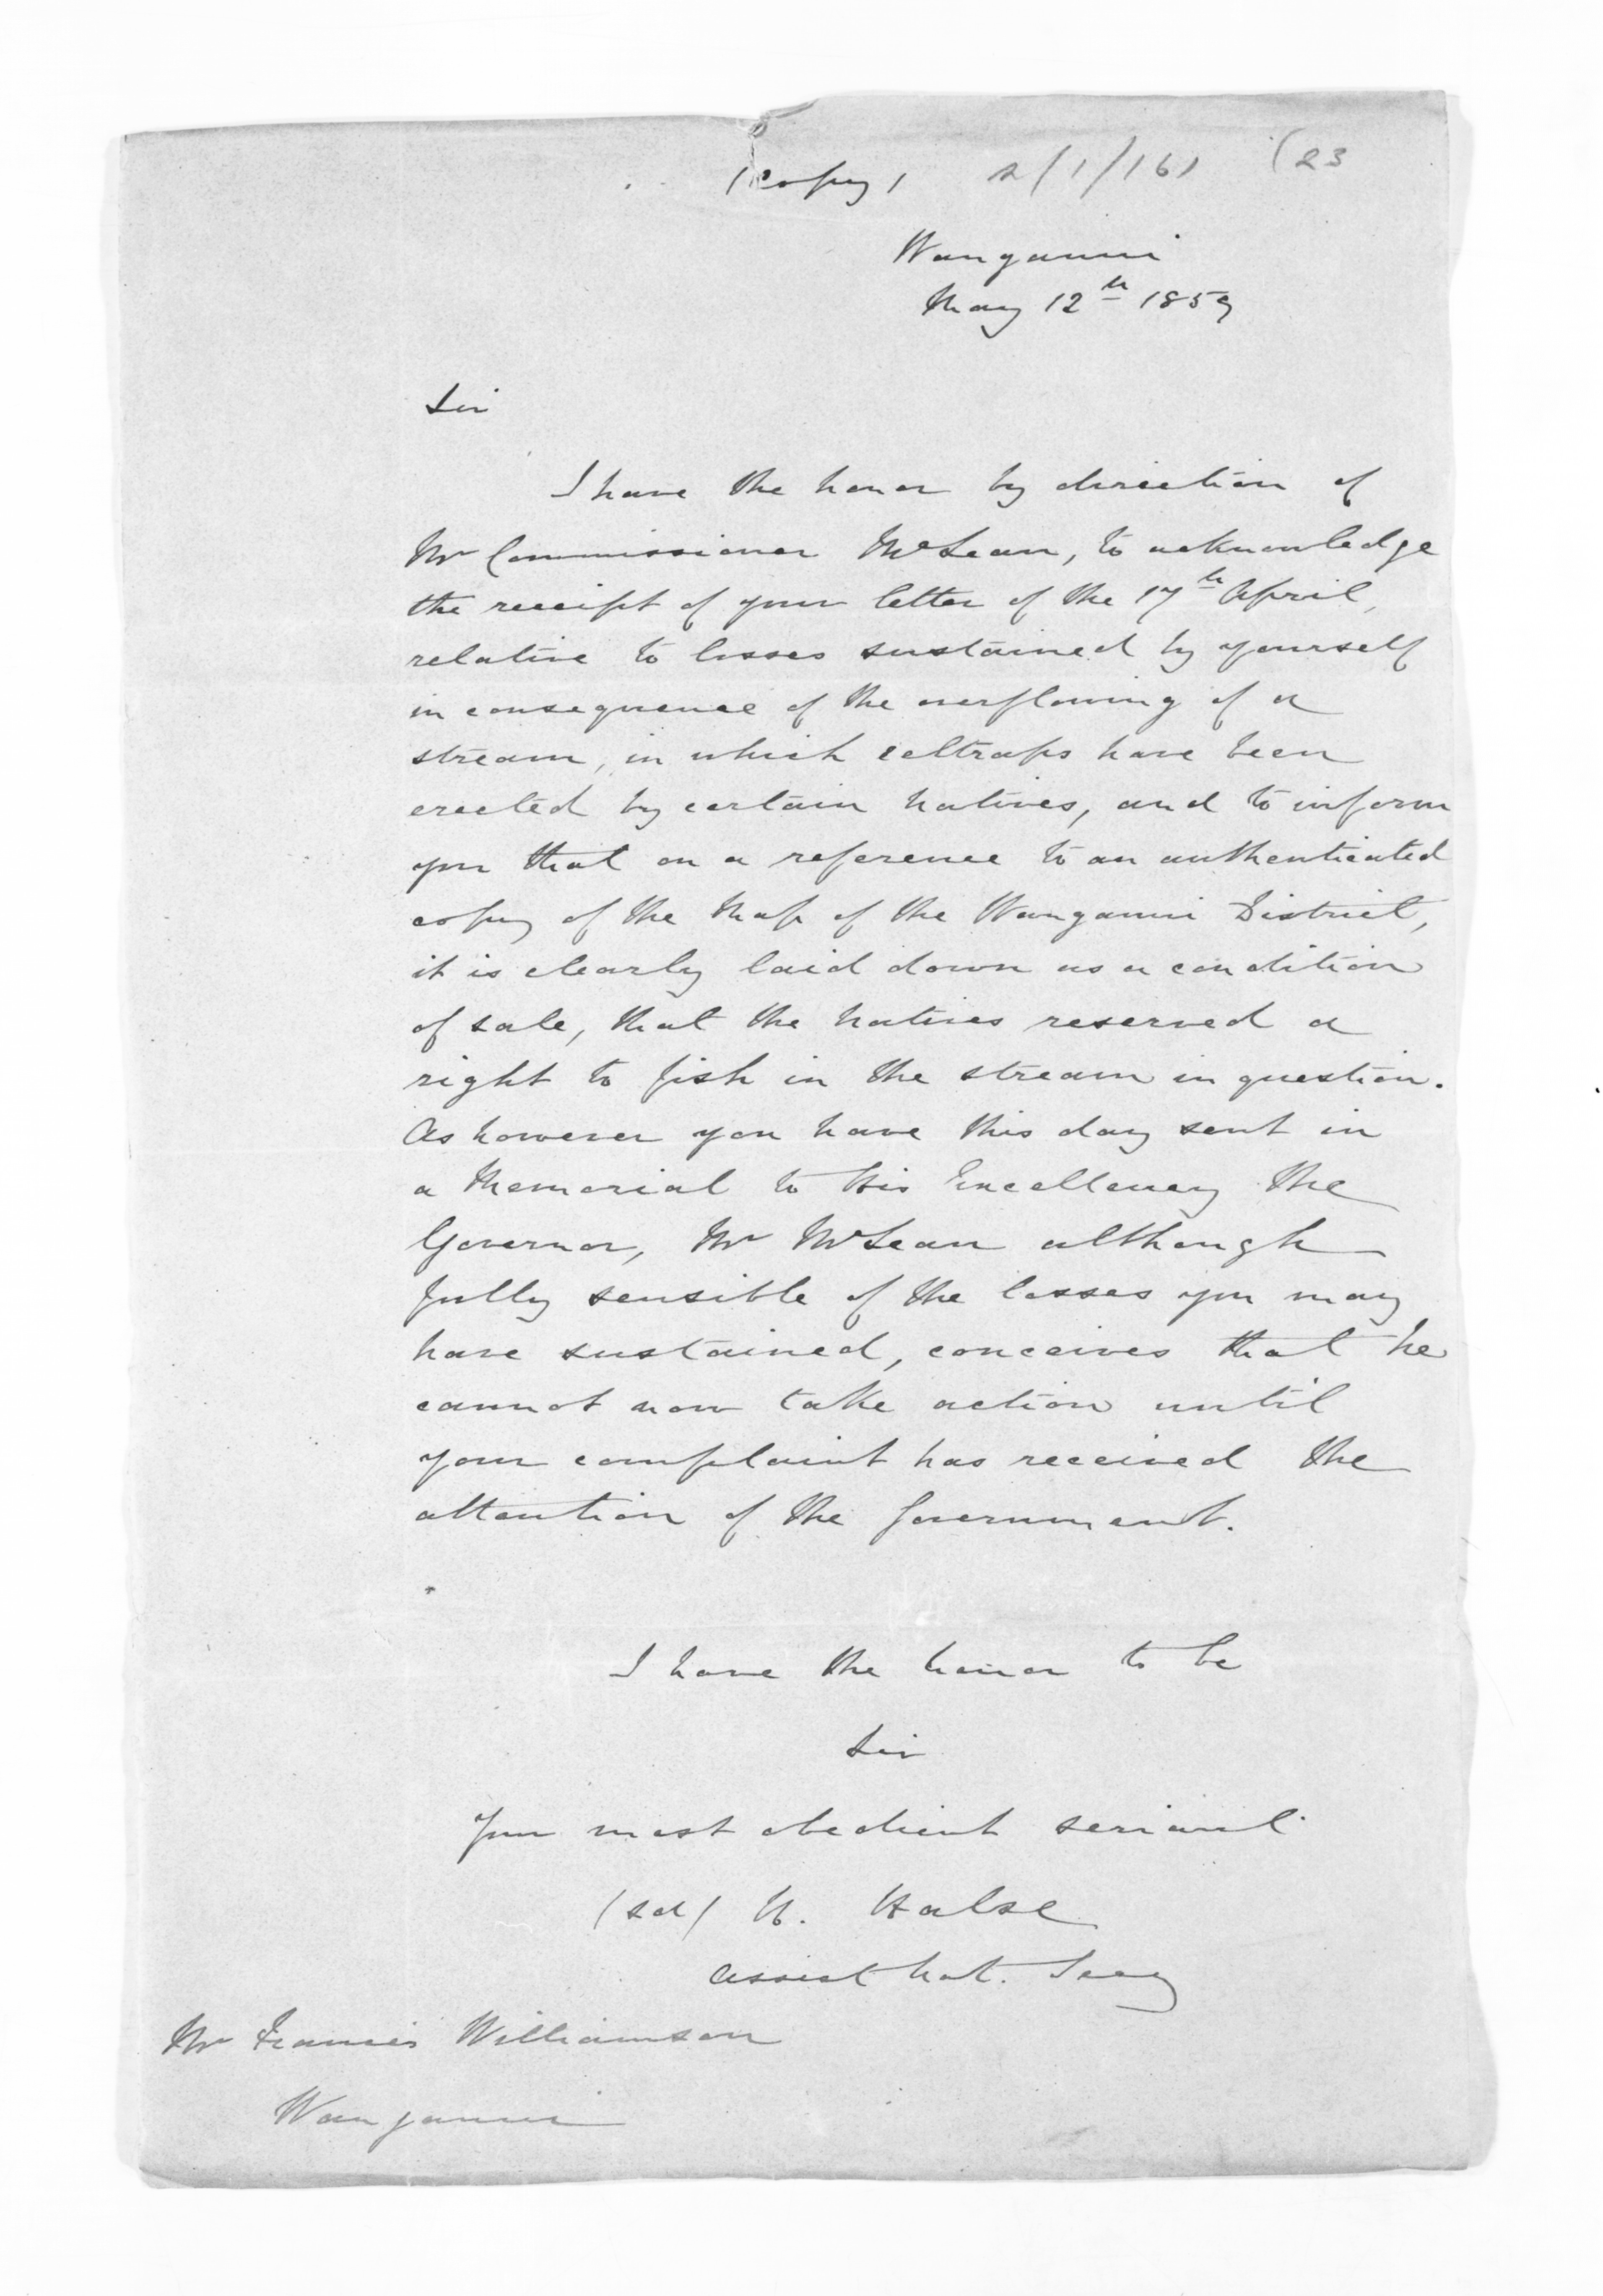 (Copy) 2/1/161 (23
Wanganui
May 12th 1859
Sir
I have the honor by direction of
Mr Commissioner McLean, to acknowledge
the receipt of your letter of the 17th April,
relative to losses sustained by yourself
in consequence of the overflowing of a
stream, in which eeltraps have been
erected by certain natives, and to inform
you that on a reference to an authenticated
copy of the Map of the Wanganui District,
it is clearly laid down as a condition
of sale, that the natives reserved a
right to fish in the stream in question.
As however you have this day sent in
a Memorial to His Excellency the
Governor, Mr McLean although
fully sensible of the losses you may
have sustained, conceives that he
cannot now take action until
your complaint has received the
attention of the Government.
I have the honor to be
Sir
Your most obedient servant
(sd) H. Halse
Assist Nat. Secy
Mr Francis Williamson
Wanganui